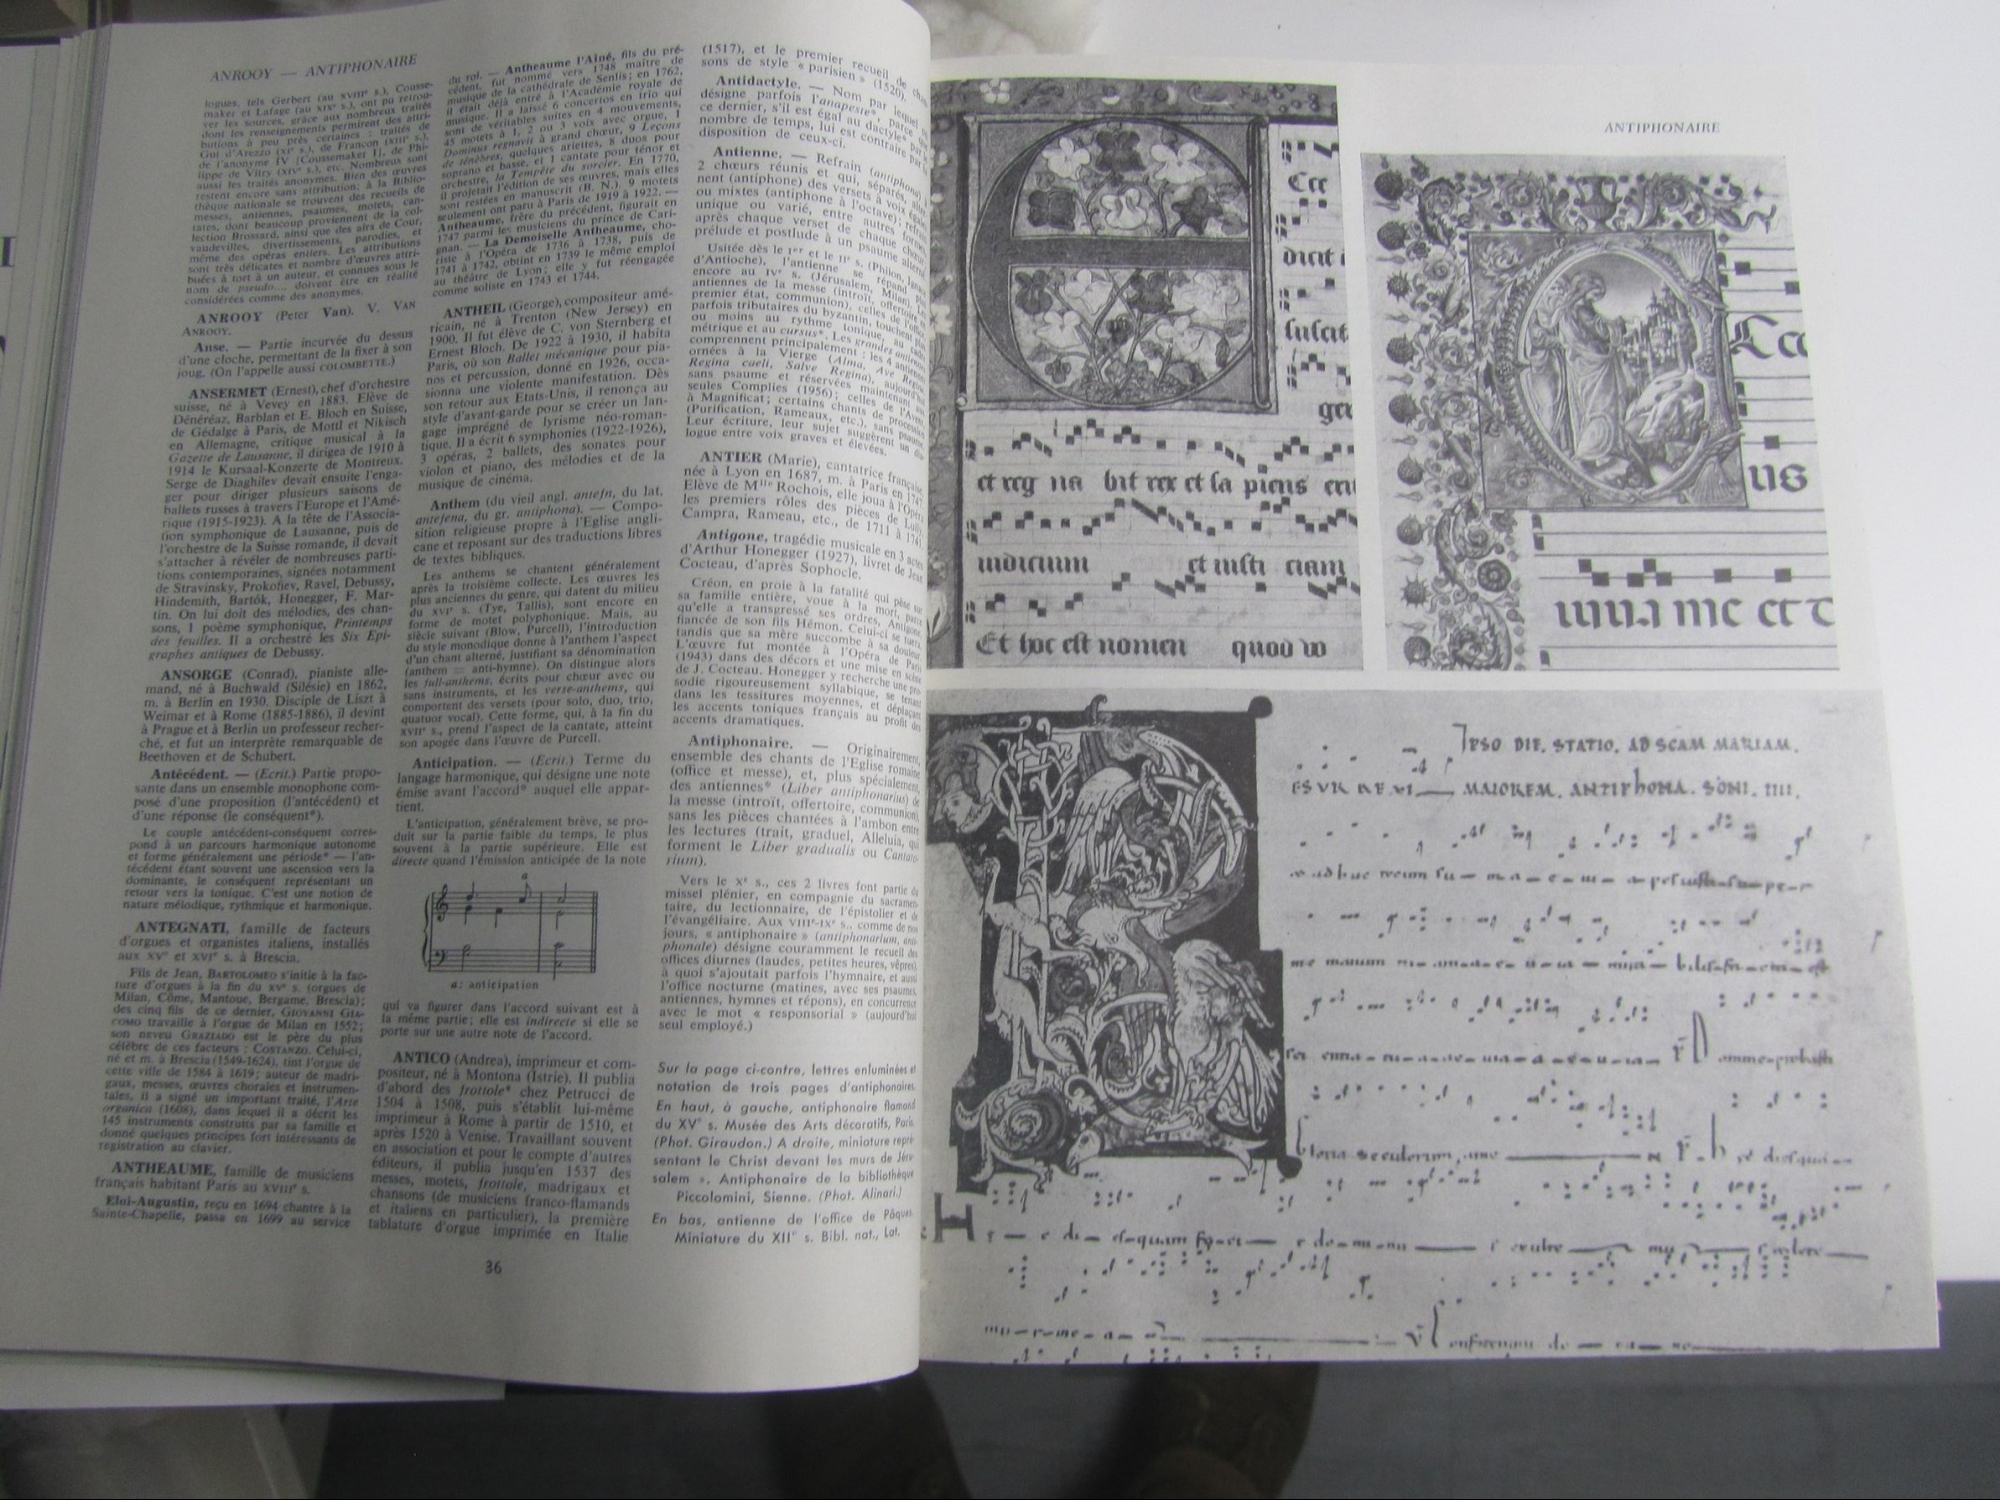 ANROOY — ANTIPHONAIRE
logues, tels Gerbert (au XVIIIe s.), Cousse-
maker et Lafage (au XIXe s.), ont pu retrou-
ver les sources, grâce aux nombreux traités
dont les renseignements permirent des attri-
butions à peu près certaines : traités de
Gui d'Arezzo (XIe s.), de Francon (XIIIe s.),
de l'anonyme IV [Coussemaker I], de Phi-
lippe de Vitry (XIVe s.), etc. Nombreux sont
aussi les traités anonymes. Bien des œuvres
restent encore sans attribution; à la Biblio-
thèque nationale se trouvent des recueils de
messes, antiennes, psaumes, motets, can-
tates, dont beaucoup proviennent de la col-
lection Brossard, ainsi que des airs de Cour,
vaudevilles, divertissements, parodies, et
même des opéras entiers. Les attributions
sont très délicates et nombre d'œuvres attri-
buées à tort à un auteur, et connues sous le
nom de pseudo..., doivent être en réalité
considérées comme des anonymes.
ANROOY (Peter Van). V. VAN
ANROOY.
Anse. — Partie incurvée du dessus
d'une cloche, permettant de la fixer à son
joug. (On l'appelle aussi COLOMBETTE.)
ANSERMET (Ernest), chef d'orchestre
suisse, né à Vevey en 1883. Elève de
Dénéréaz, Barblan et E. Bloch en Suisse,
de Gédalge à Paris, de Mottl et Nikisch
en Allemagne, critique musical à la
Gazette de Lausanne, il dirigea de 1910 à
1914 le Kursaal-Konzerte de Montreux.
Serge de Diaghilev devait ensuite l'enga-
ger pour diriger plusieurs saisons de
ballets russes à travers l'Europe et l'Amé-
rique (1915-1923). A la tête de l'Associa-
tion symphonique de Lausanne, puis de
l'orchestre de la Suisse romande, il devait
s'attacher à révéler de nombreuses parti-
tions contemporaines, signées notamment
de Stravinsky, Prokofiev, Ravel, Debussy,
Hindemith, Bartók, Honegger, F. Mar-
tin. On lui doit des mélodies, des chan-
sons, 1 poème symphonique, Printemps
des feuilles. Il a orchestré les Six Epi-
graphes antiques de Debussy.
ANSORGE (Conrad), pianiste alle-
mand, né à Buchwald (Silésie) en 1862,
m. à Berlin en 1930. Disciple de Liszt à
Weimar et à Rome (1885-1886), il devint
à Prague et à Berlin un professeur recher-
ché, et fut un interprète remarquable de
Beethoven et de Schubert.
Antécédent. — (Ecrit.) Partie propo-
sante dans un ensemble monophone com-
posé d'une proposition (l'antécédent) et
d'une réponse (le conséquent*).
Le couple antécédent-conséquent corres-
pond à un parcours harmonique autonome
et forme généralement une période* — l'an-
técédent étant souvent une ascension vers la
dominante, le conséquent représentant un
retour vers la tonique. C'est une notion de
nature mélodique, rythmique et harmonique.
ANTEGNATI, famille de facteurs
d'orgues et organistes italiens, installés
aux XVe et XVIe s. à Brescia.
Fils de Jean, BARTOLOMEO s'initie à la fac-
ture d'orgues à la fin du XVe s. (orgues de
Milan, Côme, Mantoue, Bergame, Brescia);
des cinq fils de ce dernier, GIOVANNI GIA-
COMO travaille à l'orgue de Milan en 1552;
son neveu GRAZIADO est le père du plus
célèbre de ces facteurs : COSTANZO. Celui-ci,
né et m. à Brescia (1549-1624), tint l'orgue de
cette ville de 1584 à 1619; auteur de madri-
gaux, messes, œuvres chorales et instrumen-
tales, il a signé un important traité, l'Arte
organica (1608), dans lequel il a décrit les
145 instruments construits par sa famille et
donné quelques principes fort intéressants de
registration au clavier.
ANTHEAUME, famille de musiciens
français habitant Paris au XVIIIe s.
Eloi-Augustin, reçu en 1694 chantre à la
Sainte-Chapelle, passa en 1699 au service
du roi. — Antheaume l'Aîné, fils du pré-
cédent, fut nommé vers 1748 maître de
musique de la cathédrale de Senlis; en 1762,
il était déjà entré à l'Académie royale de
musique. Il a laissé 6 concertos en trio qui
sont de véritables suites en 4 mouvements,
45 motets à 1, 2 ou 3 voix avec orgue, 1
Dominus regnavit à grand chœur, 9 Leçons
de ténèbres, quelques ariettes, 8 duos pour
soprano et basse, et 1 cantate pour ténor et
orchestre, la Tempête du sorcier. En 1770,
il projetait l'édition de ses œuvres, mais elles
sont restées en manuscrit (B. N.). 9 motets
seulement ont paru à Paris de 1919 à 1922. —
Antheaume, frère du précédent, figurait en
1747 parmi les musiciens du prince de Cari-
gnan. — La Demoiselle Antheaume, cho-
riste à l'Opéra de 1736 à 1738, puis de
1741 à 1742, obtint en 1739 le même emploi
au théâtre de Lyon; elle y fut réengagée
comme soliste en 1743 et 1744.
ANTHEIL (George), compositeur amé-
ricain, né à Trenton (New Jersey) en
1900. Il fut élève de C. von Sternberg et
Ernest Bloch. De 1922 à 1930, il habita
Paris, où son Ballet mécanique pour pia-
nos et percussion, donné en 1926, occa-
sionna une violente manifestation. Dès
son retour aux Etats-Unis, il renonça au
style d'avant-garde pour se créer un lan-
gage imprégné de lyrisme néo-roman-
tique. Il a écrit 6 symphonies (1922-1926),
3 opéras, 2 ballets, des sonates pour
violon et piano, des mélodies et de la
musique de cinéma.
Anthem (du vieil angl. antefn, du lat.
antefena, du gr. antiphona). — Compo-
sition religieuse propre à l'Eglise angli-
cane et reposant sur des traductions libres
de textes bibliques.
Les anthems se chantent généralement
après la troisième collecte. Les œuvres les
plus anciennes du genre, qui datent du milieu
du XVIe s. (Tye, Tallis), sont encore en
forme de motet polyphonique. Mais, au
siècle suivant (Blow, Purcell), l'introduction
du style monodique donne à l'anthem l'aspect
d'un chant alterné, justifiant sa dénomination
(anthem = anti-hymne). On distingue alors
les full-anthems, écrits pour chœur avec ou
sans instruments, et les verse-anthems, qui
comportent des versets (pour solo, duo, trio,
quatuor vocal). Cette forme, qui, à la fin du
XVIIe s., prend l'aspect de la cantate, atteint
son apogée dans l'œuvre de Purcell.
Anticipation. — (Ecrit.) Terme du
langage harmonique, qui désigne une note
émise avant l'accord* auquel elle appar-
tient.
L'anticipation, généralement brève, se pro-
duit sur la partie faible du temps, le plus
souvent à la partie supérieure. Elle est
directe quand l'émission anticipée de la note
a
a : anticipation
qui va figurer dans l'accord suivant est à
la même partie; elle est indirecte si elle se
porte sur une autre note de l'accord.
ANTICO (Andrea), imprimeur et com-
positeur, né à Montona (Istrie). Il publia
d'abord des frottole* chez Petrucci de
1504 à 1508, puis s'établit lui-même
imprimeur à Rome à partir de 1510, et
après 1520 à Venise. Travaillant souvent
en association et pour le compte d'autres
éditeurs, il publia jusqu'en 1537 des
messes, motets, frottole, madrigaux et
chansons (de musiciens franco-flamands
et italiens en particulier), la première
tablature d'orgue imprimée en Italie
(1517), et le premier recueil de chan-
sons de style « parisien » (1520).
Antidactyle. — Nom par lequel
désigne parfois l'anapeste*, parce
ce dernier, s'il est égal au dactyle*
nombre de temps, lui est contraire par
disposition de ceux-ci.
Antienne. — Refrain (antiphona)
2 chœurs réunis et qui, séparés,
nent (antiphone) des versets à voix
ou mixtes (antiphone à l'octave);
unique ou varié, entre autres
après chaque verset de chaque
prélude et postlude à un psaume
Usitée dès le Ier et le IIe s. (Philon,
d'Antioche), l'antienne se répand
encore au IVe s. (Jérusalem, Milan).
antiennes de la messe (introït,
premier état, communion), celles de
parfois tributaires du byzantin,
ou moins au rythme tonique, au
métrique et au cursus*. Les grandes
comprennent principalement : les 4
ornées à la Vierge (Alma, Ave
Regina cæli, Salve Regina),
sans psaume et réservées maintenant
seules Complies (1956); celles de l'Avent
à Magnificat; certains chants de procession
(Purification, Rameaux, etc.), sans psaume
Leur écriture, leur sujet suggèrent un
logue entre voix graves et élevées.
ANTIER (Marie), cantatrice française
née à Lyon en 1687, m. à Paris en
Elève de Mlle Rochois, elle joua à l'Opéra
les premiers rôles des pièces de Lully
Campra, Rameau, etc., de 1711 à 1741.
Antigone, tragédie musicale en 3 actes
d'Arthur Honegger (1927), livret de Jean
Cocteau, d'après Sophocle.
Créon, en proie à la fatalité qui pèse sur
sa famille entière, voue à la mort, parce
qu'elle a transgressé ses ordres, Antigone,
fiancée de son fils Hémon. Celui-ci se tuera,
tandis que sa mère succombe à sa douleur.
L'œuvre fut montée à l'Opéra de Paris
(1943) dans des décors et une mise en scène
de J. Cocteau. Honegger y recherche une pro-
sodie rigoureusement syllabique, se tenant
dans les tessitures moyennes, et déplaçant
les accents toniques français au profit des
accents dramatiques.
Antiphonaire. — Originairement,
ensemble des chants de l'Eglise romaine
(office et messe), et, plus spécialement,
des antiennes* (Liber antiphonarius) de
la messe (introït, offertoire, communion),
sans les pièces chantées à l'ambon entre
les lectures (trait, graduel, Alleluia, qui
forment le Liber gradualis ou Cantato-
rium).
Vers le Xe s., ces 2 livres font partie du
missel plénier, en compagnie du sacramen-
taire, du lectionnaire, de l'épistolier et de
l'évangéliaire. Aux VIIIe-IXe s., comme de nos
jours, « antiphonaire » (antiphonarium, anti-
phonale) désigne couramment le recueil des
offices diurnes (laudes, petites heures, vêpres),
à quoi s'ajoutait parfois l'hymnaire, et aussi
l'office nocturne (matines, avec ses psaumes,
antiennes, hymnes et répons), en concurrence
avec le mot « responsorial » (aujourd'hui
seul employé.)
Sur la page ci-contre, lettres enluminées et
notation de trois pages d'antiphonaires.
En haut, à gauche, antiphonaire flamand
du XVe s. Musée des Arts décoratifs, Paris.
(Phot. Giraudon.) A droite, miniature repré-
sentant le Christ devant les murs de Jéru-
salem ». Antiphonaire de la bibliothèque
Piccolomini, Sienne. (Phot. Alinari.)
En bas, antienne de l'office de Pâques.
Miniature du XIIe s. Bibl. nat., Lat.
36
ANTIPHONAIRE
Ecc
dicit
suscit
ger
et reg na bit rex et sa piens erit
iudicium et iusti ciam
Et hoc est nomen quod vo
Ecc
us
me et
IPSO DIE. STATIO. AD SCAM MARIAM.
MAIOREM. ANTIPHONA. SONI. IIII.